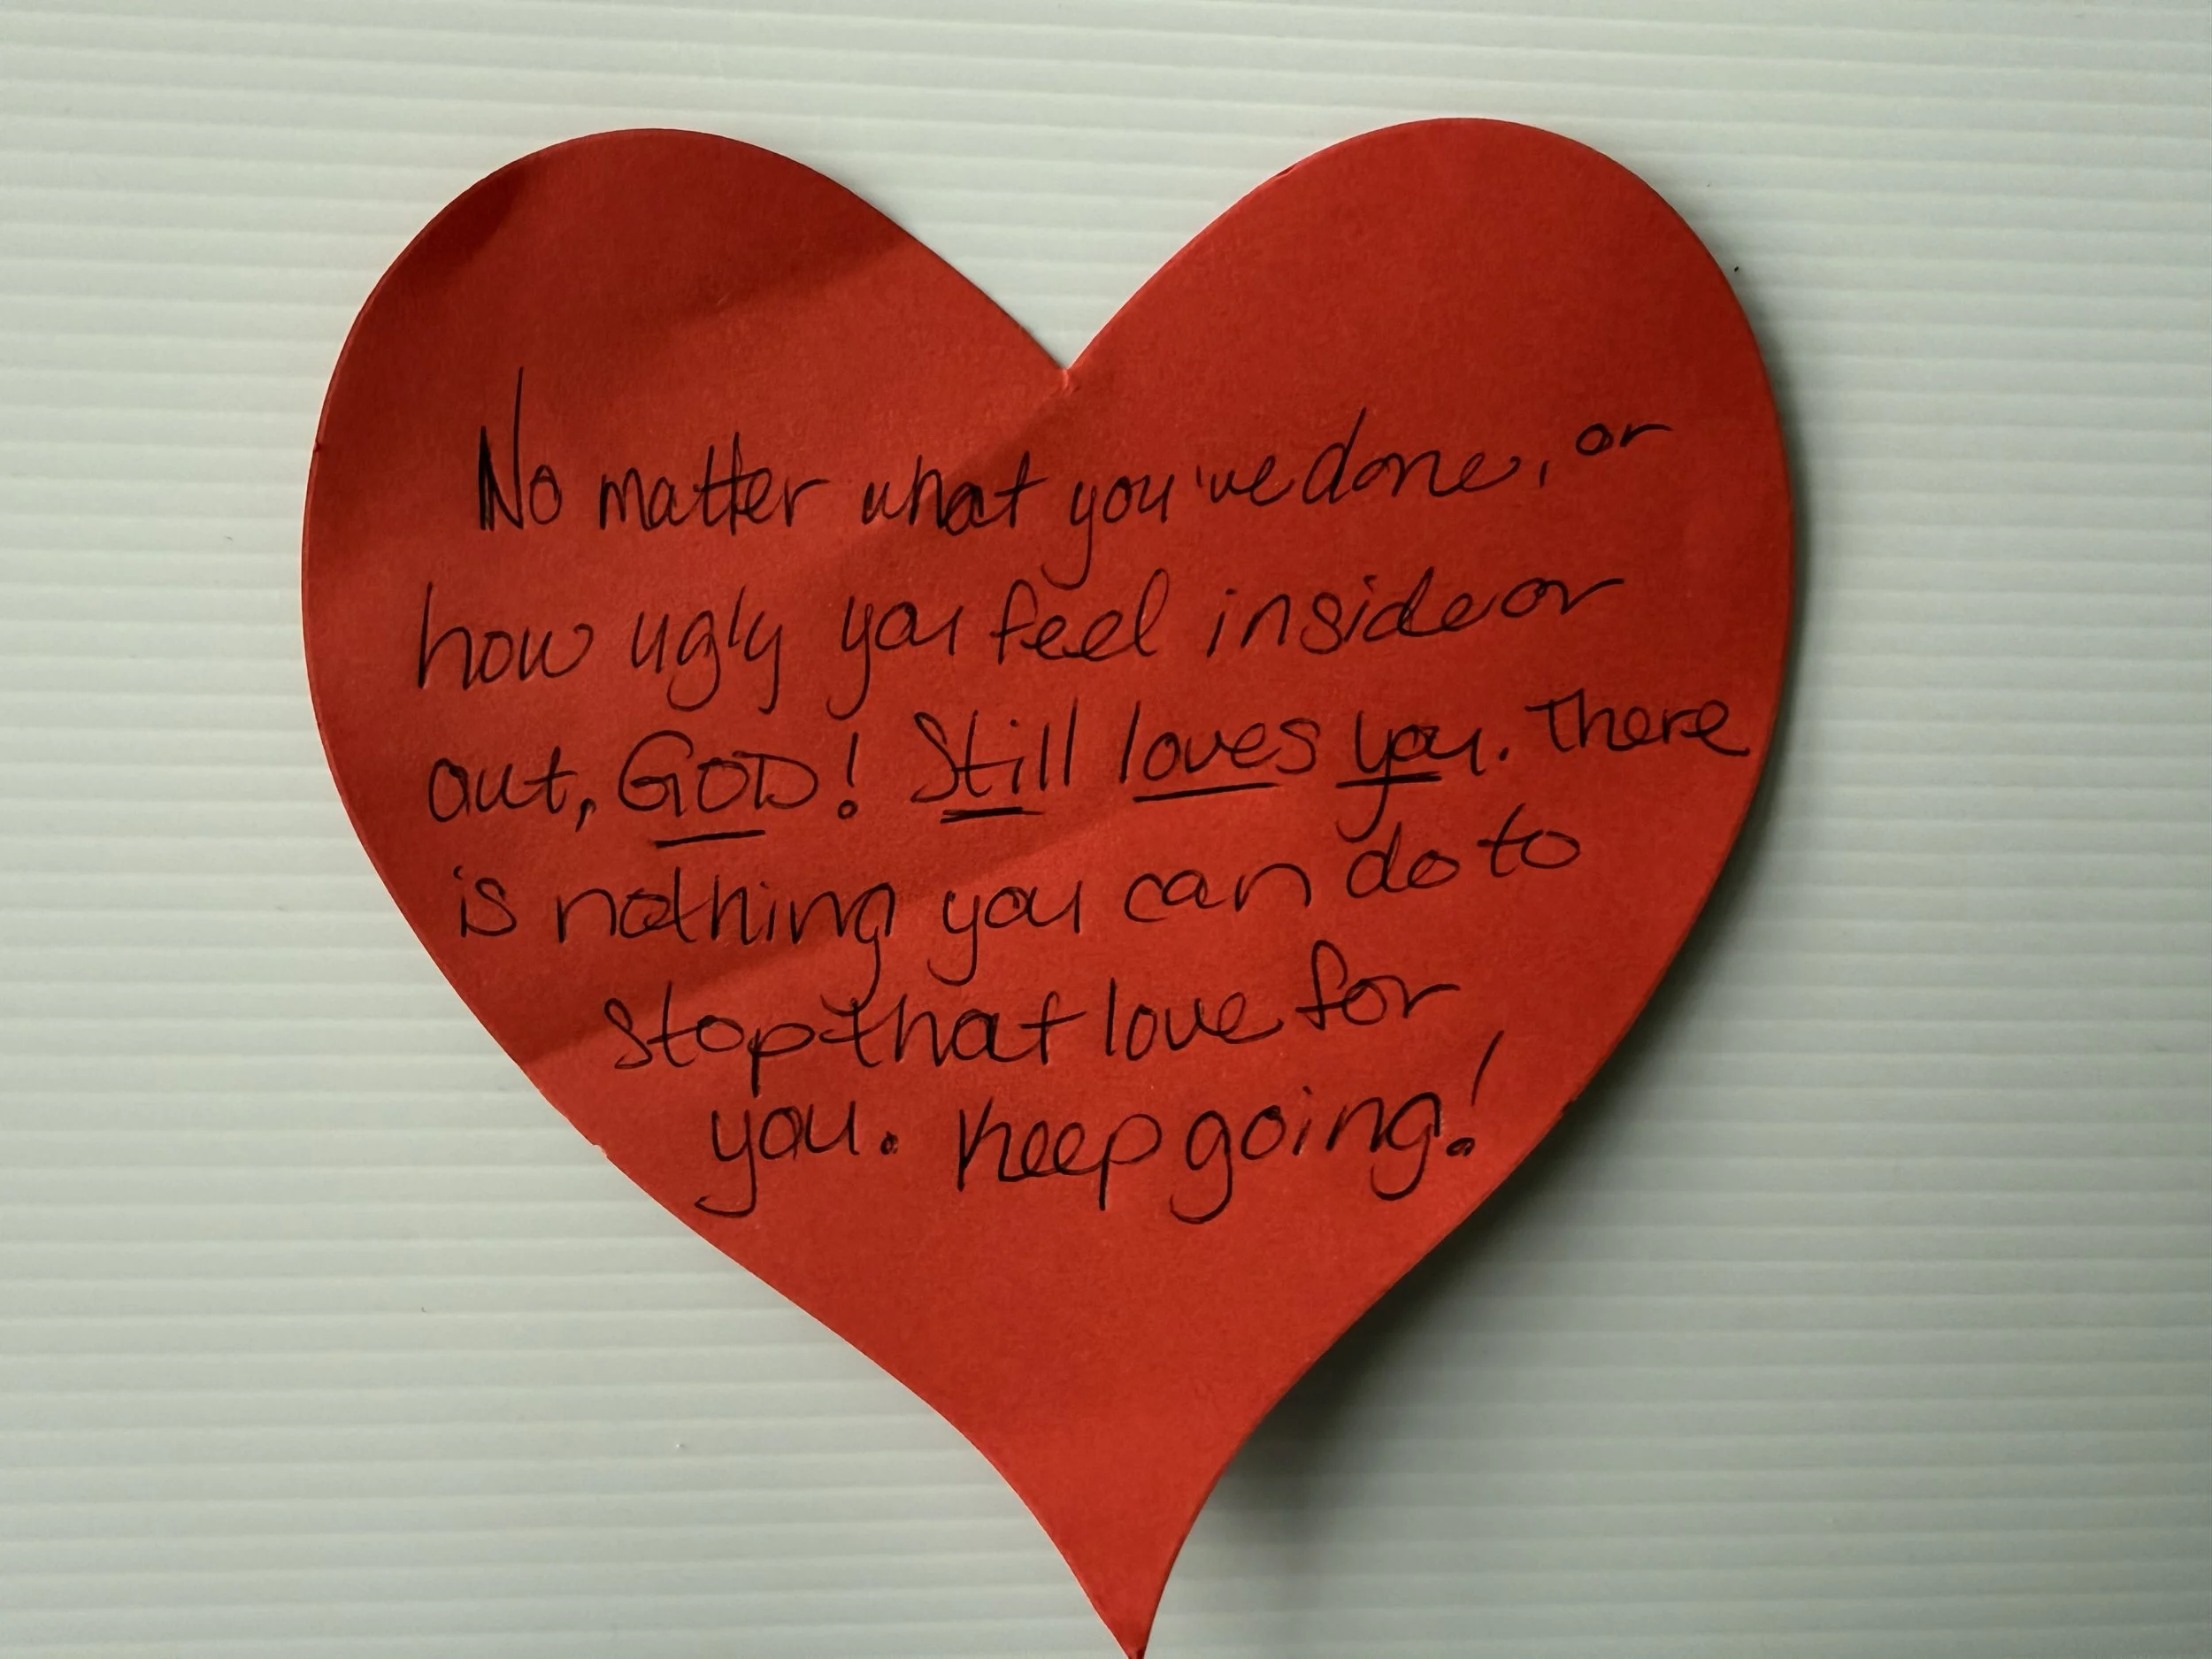 No matter what you've done, or
how ugly you feel inside or
out, GOD! Still loves you. There
is nothing you can do to
stop that love for
you. Keep going!